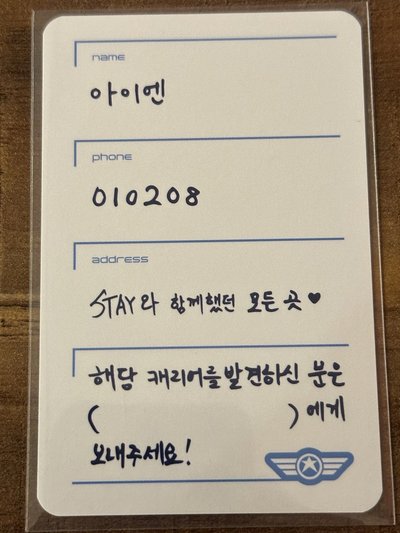 name
아이엔
phone
010208
address
STAY와 함께했던 모든 곳 ♥
해당 캐리어를 발견하신 분은
( ) 에게
보내주세요!